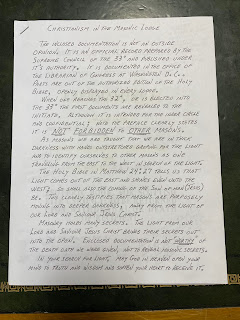 CHRISTIANISM IN THE MASONIC LODGE
THE INCLOSED DOCUMENTATION IS NOT AN OUTSIDE
OPINION. IT IS AN OFFICIAL RECORD PREPARED BY THE
SUPREME COUNCIL OF THE 33° AND PUBLISHED UNDER
IT'S AUTHORITY. IT IS DOCUMENTED IN THE OFFICE OF
THE LIBRARIAN OF CONGRESS AT WASHINGTON D.C..
PARTS ARE OUT OF THE AUTHORIZED EDITION OF THE HOLY
BIBLE, OPENLY DISPLAYED IN EVERY LODGE.
WHEN ONE REACHES THE 32°, OR IS ELECTED INTO
THE 33° THE FIRST DOCUMENTS ARE REVEALED TO THE
INITIATE. ALTHOUGH IT IS INTENDED FOR THE INNER CIRCLE
AND CONFIDENTIAL; AND THE PREFACE CLEARLY STATES
IT IS NOT FORBIDDEN TO OTHER MASONS.
AS MASONS WE ARE TAUGHT THAT WE ARE IN
DARKNESS WITH HANDS OUTSTRETCHED GROPING FOR THE LIGHT
AND TO IDENTIFY OURSELVES TO OTHER MASONS AS ONE
TRAVELING FROM THE EAST TO THE WEST IN SEARCH OF THE LIGHT.
THE HOLY BIBLE IN MATTHEW 24:27 TELLS US THAT
LIGHT COMES OUT OF THE EAST AND SHINES EVEN UNTO THE
WEST; SO SHALL ALSO THE COMING OF THE SON OF MAN (JESUS)
BE. THIS CLEARLY TESTIFIES THAT MASONS ARE PURPOSELY
MOVING INTO DEEPER DARKNESS; AWAY FROM THE LIGHT OF
OUR LORD AND SAVIOUR JESUS CHRIST.
MASONRY HOLDS MANY SECRETS. THE LIGHT FROM OUR
LORD AND SAVIOUR JESUS CHRIST BRINGS THESE SECRETS OUT
INTO THE OPEN. ENCLOSED DOCUMENTATION IS NOT WORTHY OF
THE DEATH OATH WE WERE GIVEN, NOT TO REVEAL MASONIC SECRETS.
IN YOUR SEARCH FOR LIGHT, MAY GOD IN HEAVEN OPEN YOUR
MIND TO TRUTH AND WISDOM AND SOFTEN YOUR HEART TO RECEIVE IT.